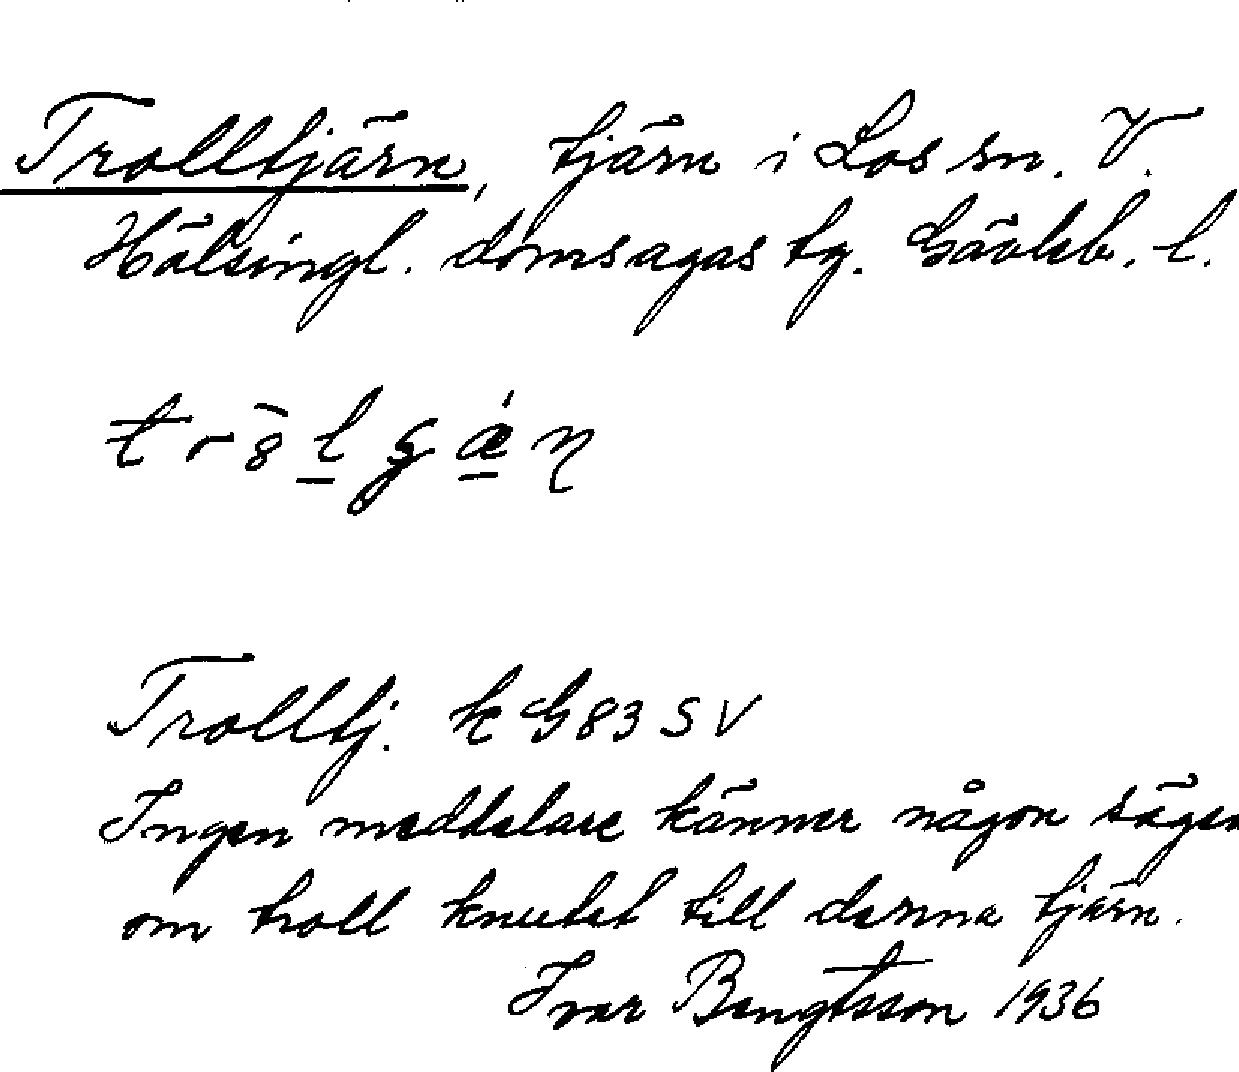 Trolltjärn, tjärn i Los sn. V.
Hälsingl. domsagas tg. Gävleb. l.
Trolltj. k G83 SV
Ingen meddelare känner någon sägen
om troll knutet till denna tjärn.
Ivar Bengtsson 1936